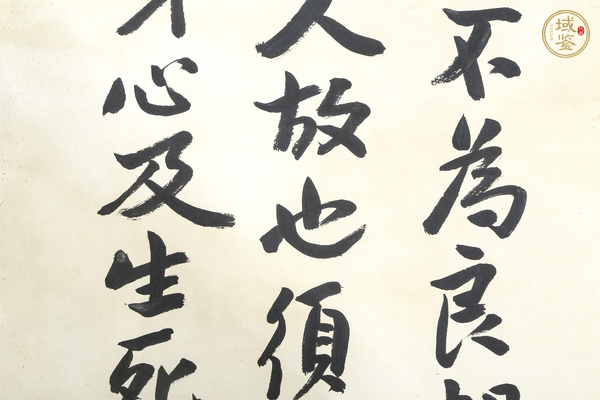 不為良
人故也須
心及生死
域鑒